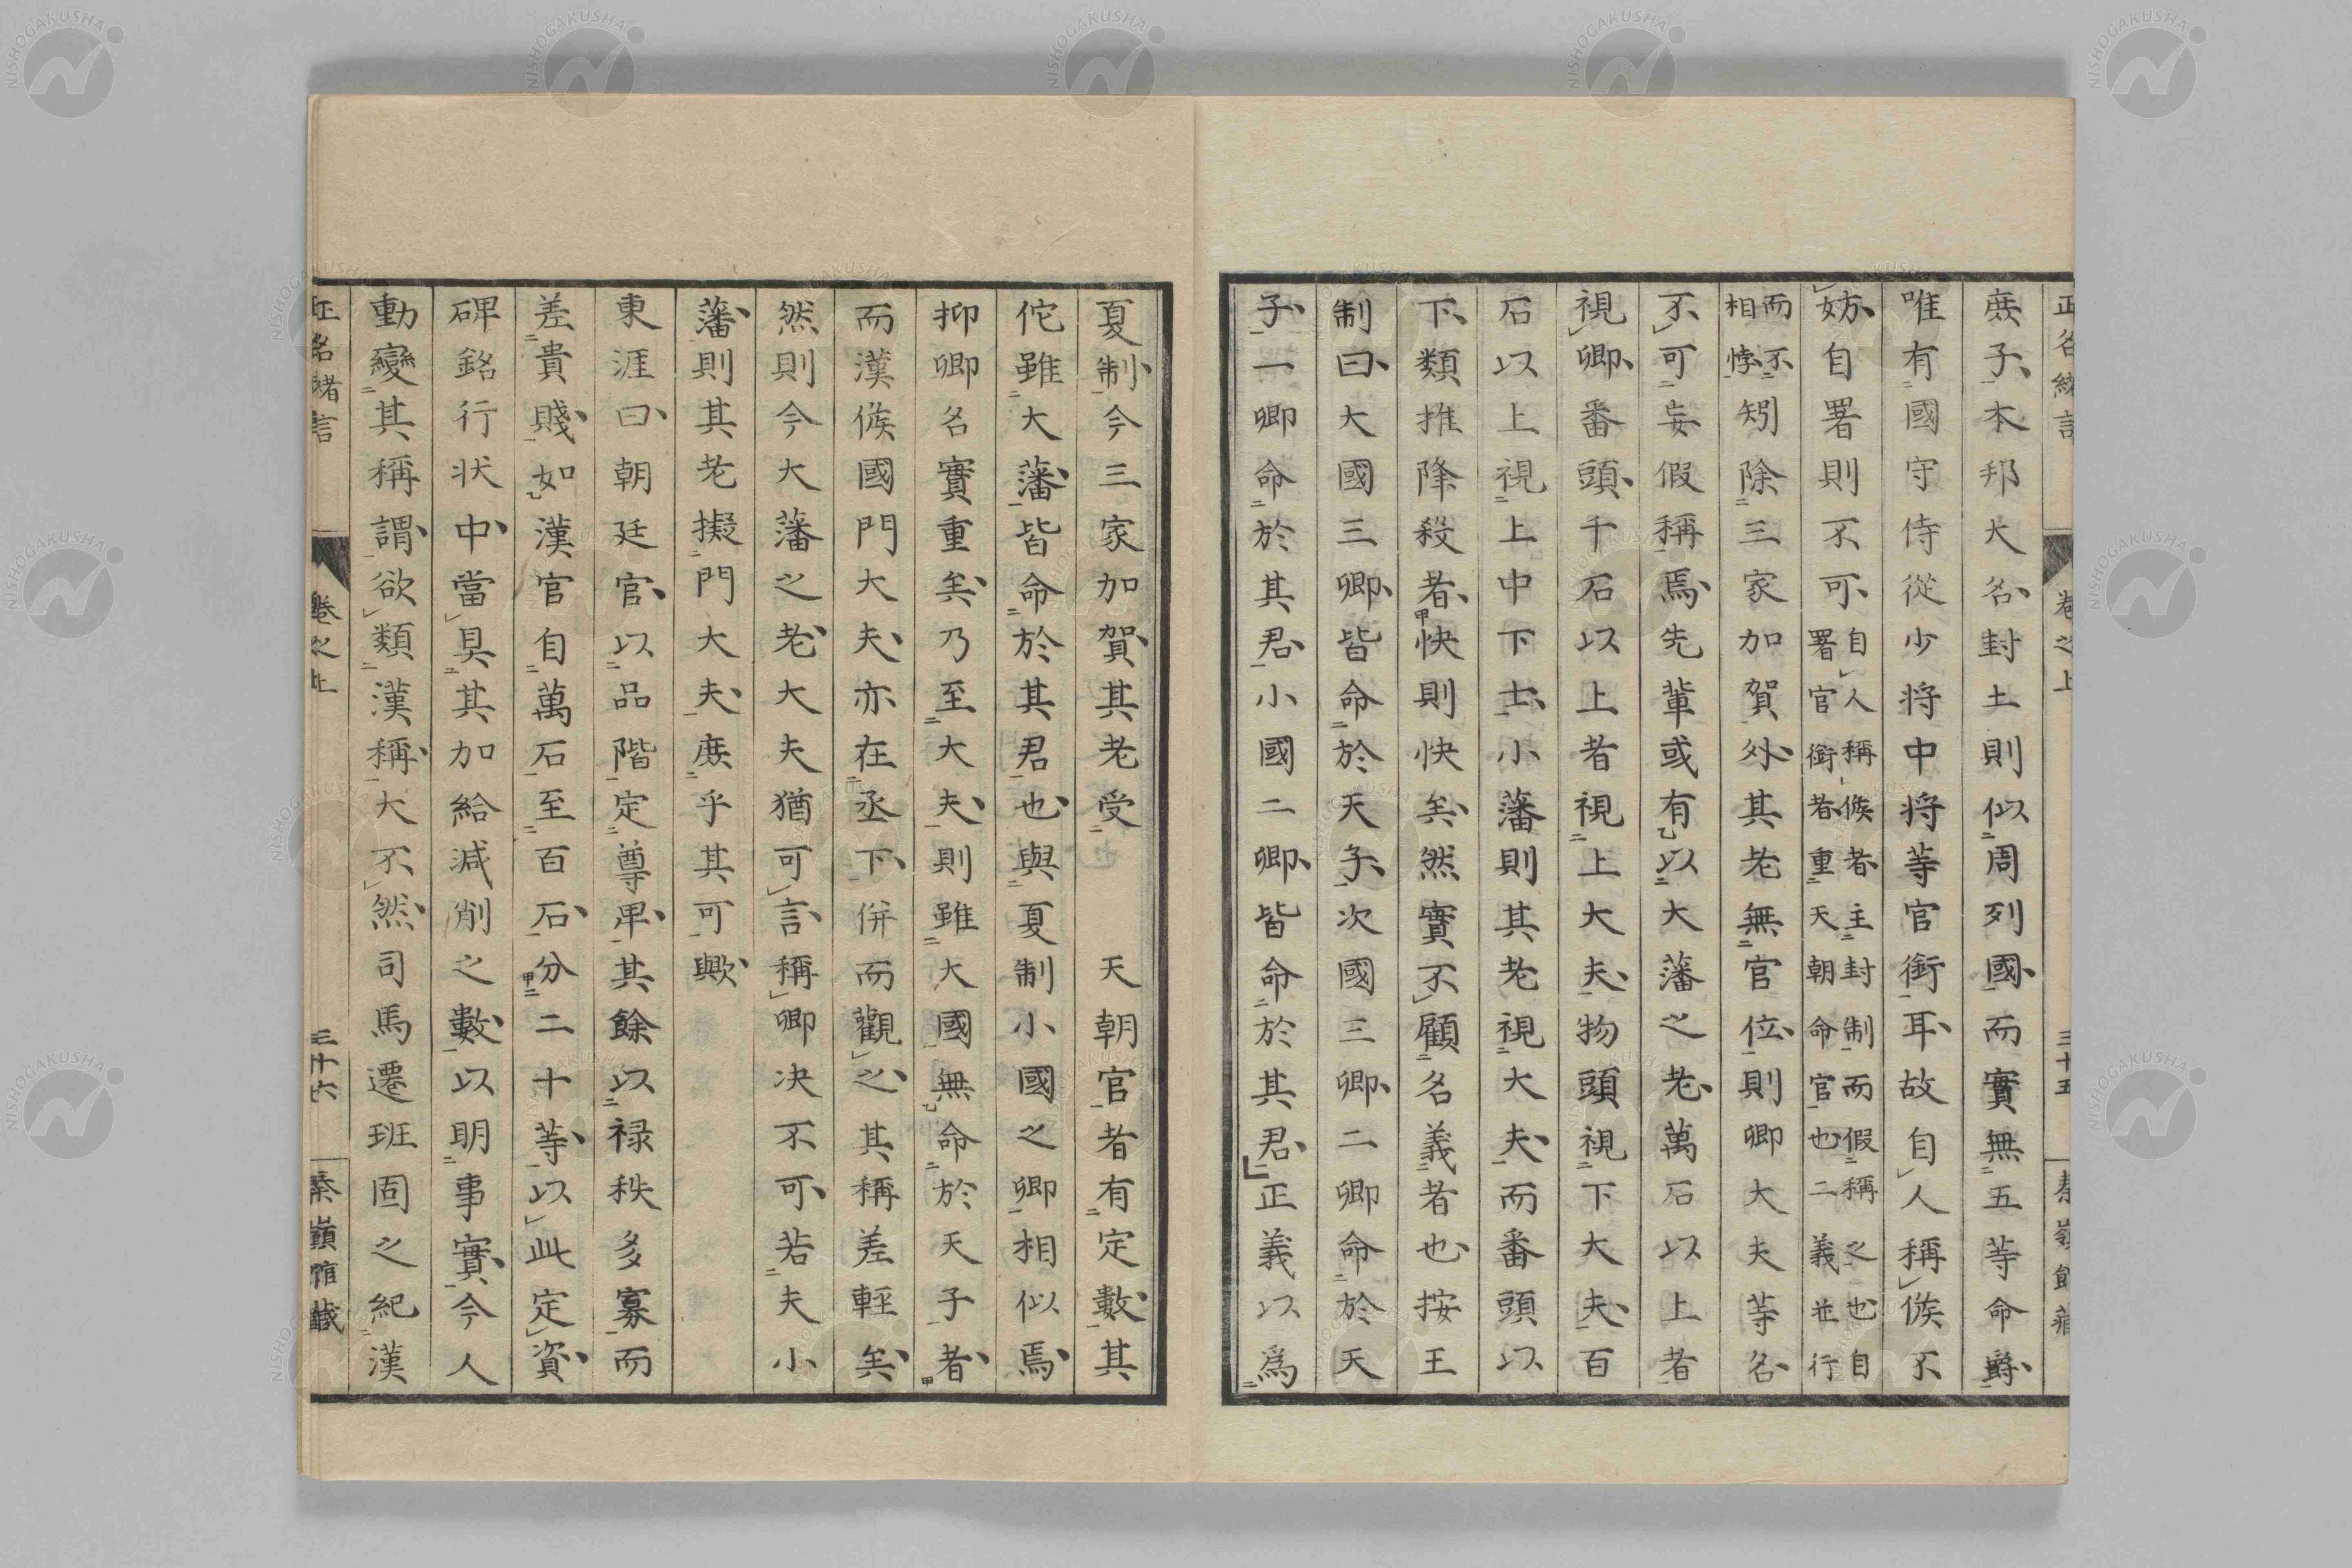 正名緒言 卷之上 三十五 蓁嶺館藏
庶子本邦大名封土則似周列國而實無五等命爵
唯有國守侍從少將中將等官銜耳故自人稱侯不
妨自署則不可自人稱侯者主封制而假稱之也自署官銜者重天朝命官也二義並行
而不相悖矧除三家加賀外其老無官位則卿大夫等名
不可妄假稱焉先輩或有以大藩之老萬石以上者
視卿番頭千石以上者視上大夫物頭視下大夫百
石以上視上中下士小藩則其老視大夫而番頭以
下類推降殺者快則快矣然實不顧名義者也按王
制曰大國三卿皆命於天子次國三卿二卿命於天
子一卿命於其君小國二卿皆命於其君正義以爲
夏制今三家加賀其老受 天朝官者有定數其
佗雖大藩皆命於其君也與夏制小國之卿相似焉
抑卿名實重矣乃至大夫則雖大國無命於天子者
而漢侯國門大夫亦在丞下併而觀之其稱差輕矣
然則今大藩之老大夫猶可言稱卿決不可若夫小
藩則其老擬門大夫庶乎其可歟
東涯曰朝廷官以品階定尊卑其餘以祿秩多寡而
差貴賤如漢官自萬石至百石分二十等以此定資
碑銘行狀中當具其加給減削之數以明事實今人
動變其稱謂欲類漢稱大不然司馬遷班固之紀漢
正名緒言 卷之上 三十六 蓁嶺館藏